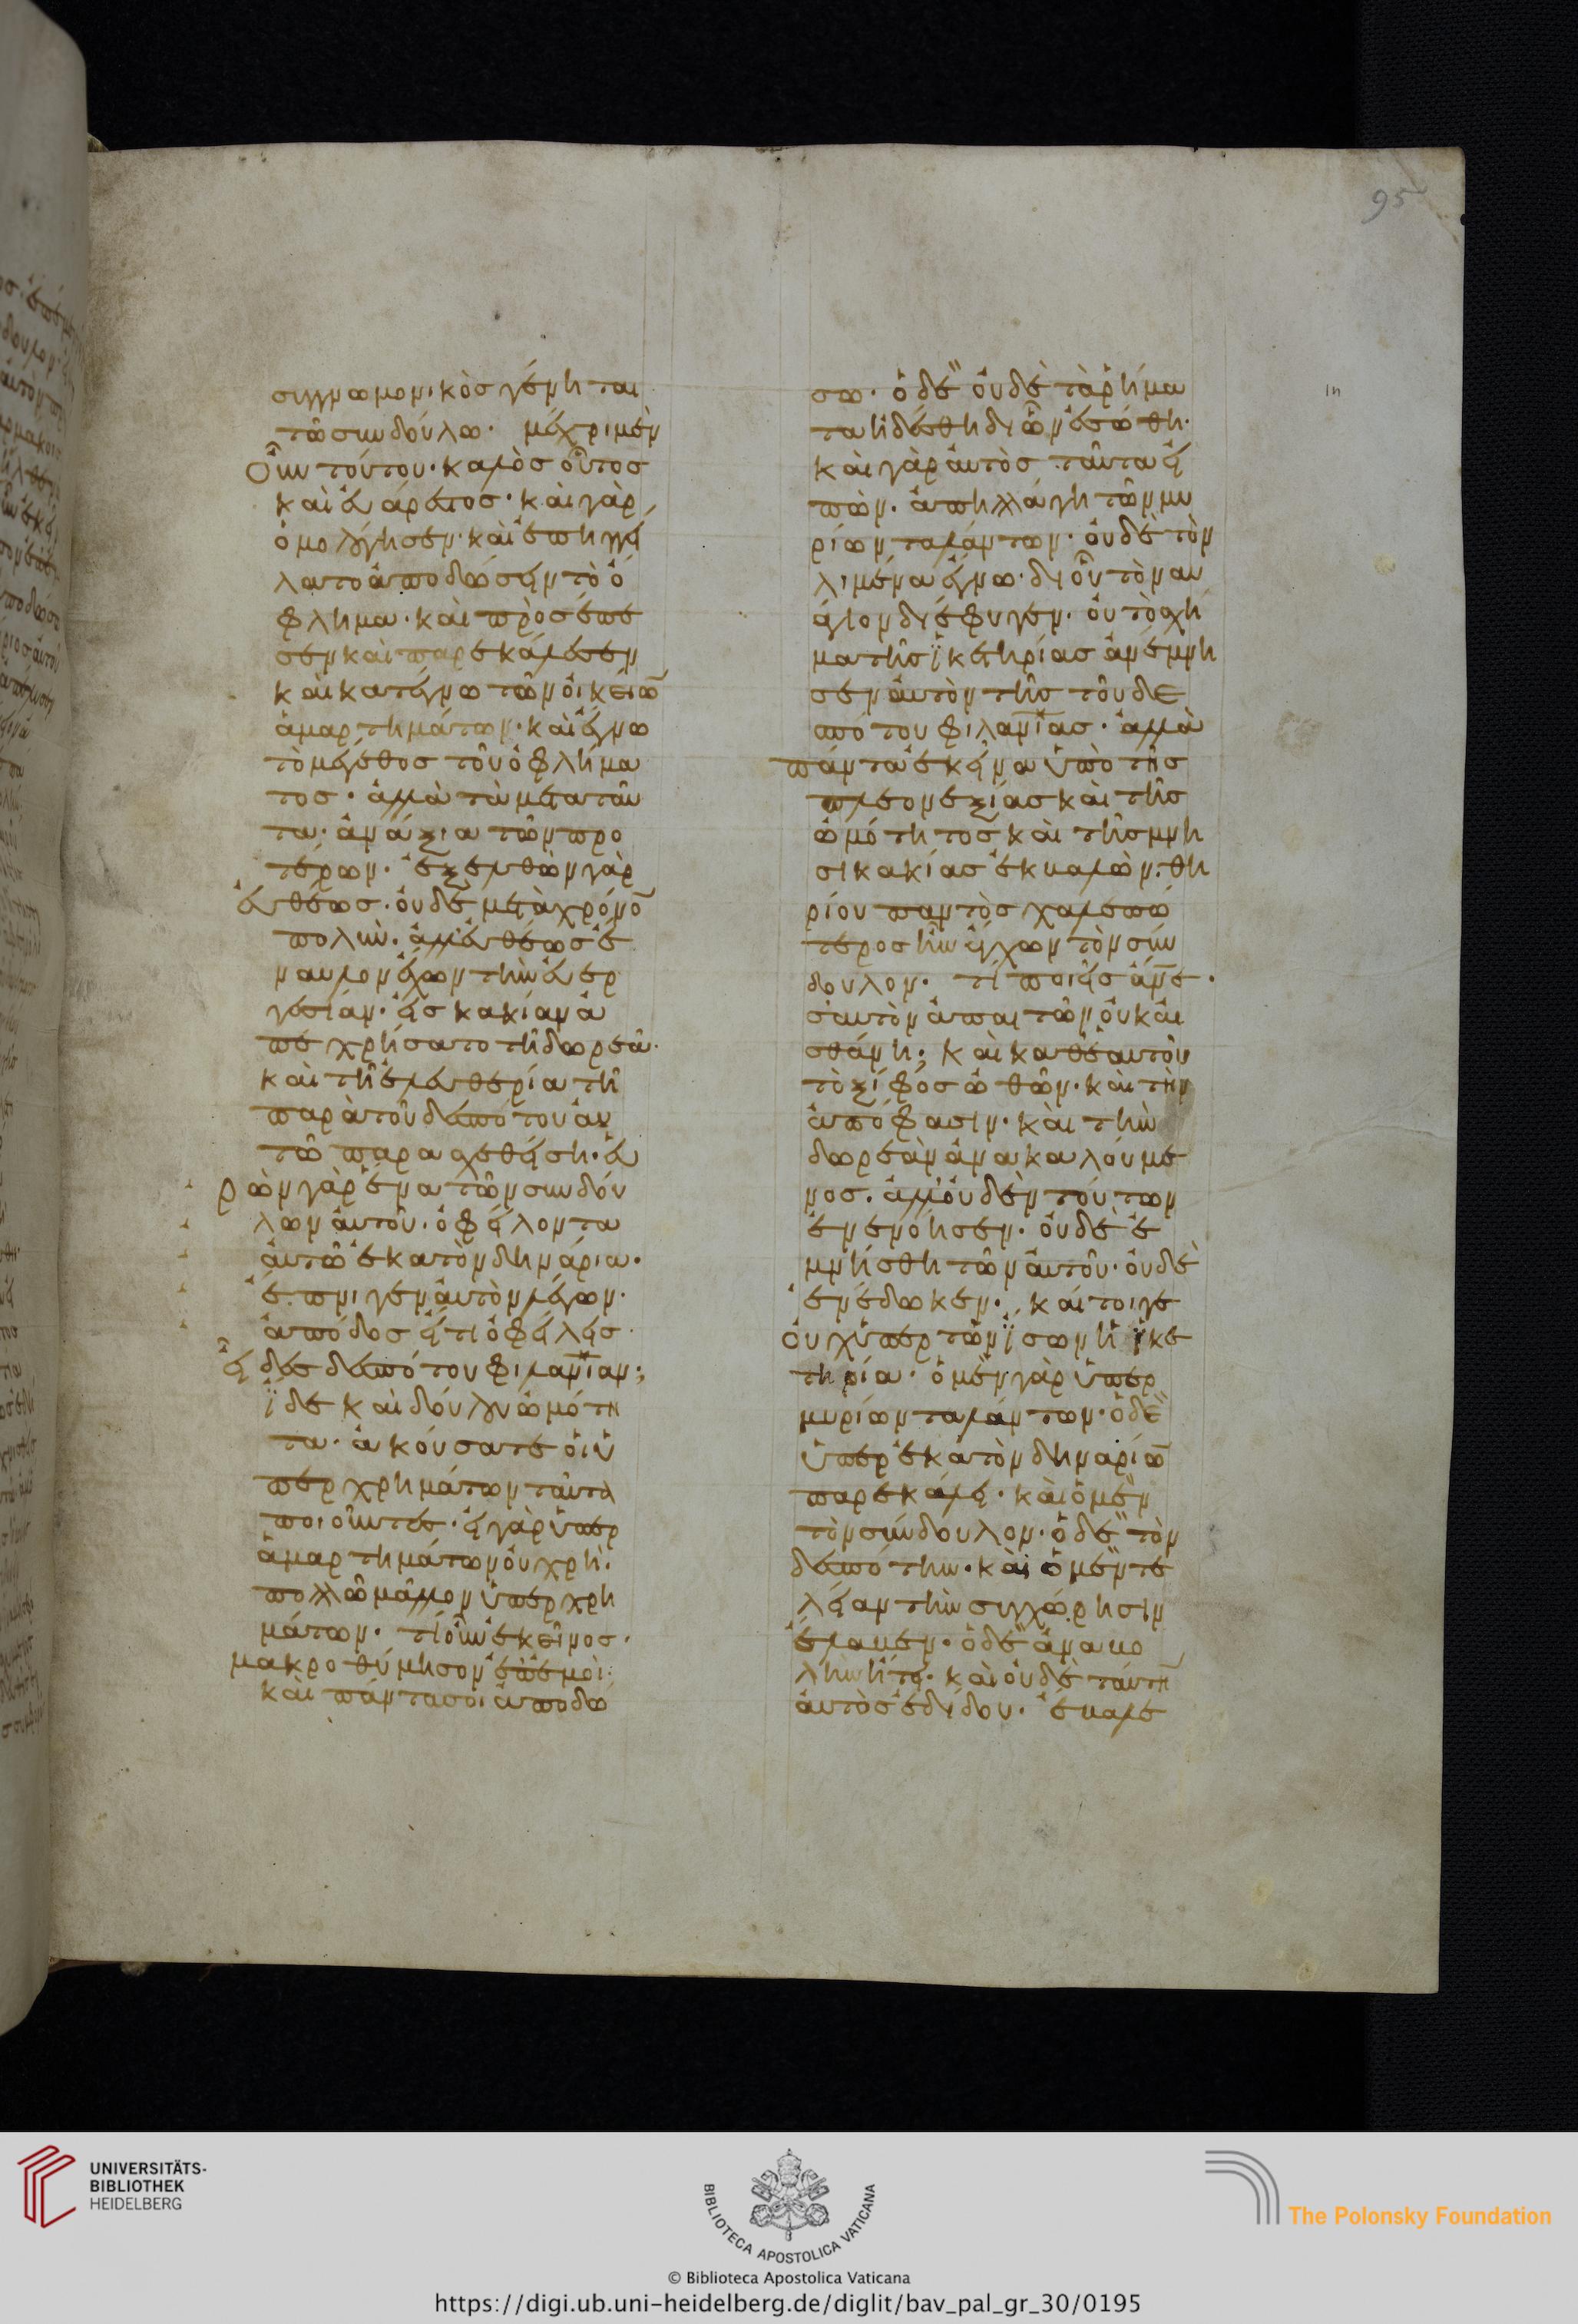 95
συγγνωμονικὸσ γένηται
τῶ συνδούλω. μέχρι μὲν
οὖν τούτου. καλὸσ οὗτος
καὶ ἐυάρεστος. καὶ γὰρ
ὁμολόγησεν. καὶ ἐπηγγεί
λατο ἀποδώσειν τὸ ὄ
φλημα. καὶ πρὸσέπε
σεν καὶ παρεκάλεσεν
καὶ κατέγνω τῶν ὀικείω̅
ἁμαρτημάτων. καὶ ἔγνω
τὸ μέγεθος τοῦ ὀφλήμα
τος. ἀλλὰ τὰ μετὰ ταῦ
τα. ἀνάξια τῶν προ
τέρων. ἐξελθὼν γὰρ
ἐυθέως. ὀυδὲ μετὰ χρόνο̅
πολὺν. ἀλλ' ἐυθέωσ ἔ
ναυλον ἔχων τὴν ἐυερ
γεσίαν. ἐισ κακίαν ἀ
πεχρήσατο τῆ δωρεᾶ.
καὶ τῆ ἐλευθερία τῆ
παρὰ τοῦ δεσπότου ἀυ
τῶ παρασχεθείση. ἑυ
ρὼν γὰρ ἕνα τῶν συνδού
λων ἀυτοῦ. ὀφείλοντα
ἀυτῶ ἑκατὸν δηνάρια.
ἔπνιγεν ἀυτὸν λέγων.
ἀπόδος εἴ τι ὀφείλεισ.
εἶδεσ δεσπότου φιλαν̅ίαν;
ἴδε καὶ δούλου ὠμότη
τα. ἀκούσατε ὁι ὑ
πὲρ χρημάτων ταῦτα
ποιοῦντεσ. ἐι γὰρ ὑπὲρ
ἁμαρτημάτων ὀυ χρὴ.
πολλῶ μᾶλλον ὑπὲρ χρη
μάτων. τί οὖν ἐκεῖνος.
μακροθύμησον ἐπ' ἐμοὶ.
καὶ πάντα σοι ἀποδώ
σω. ὁ δὲ ὀυδὲ τὰ ρήμα
τα ἠδέσθη δι ὧν ἐσώθη.
καὶ γὰρ ἀυτὸσ ταῦτα ἐι
πὼν. ἀπηλλάγη τῶν μυ
ρίων ταλάντων. ὀυδὲ τὸν
λιμένα ἔγνω. δι οὗ τὸ ναυ
άγιον διέφυγεν. ὀυ τὸ σχῆ
μα τῆσ ϊκετηρίασ ἀνέμνη
σεν ἀυτὸν τῆσ τοῦ δε
σπότου φιλαν̅ίασ. ἀλλὰ
πάντα ἐκεῖνα ὑπὸ τῆσ
πλεονεξίασ καὶ τῆσ
ὠμότητος καὶ τῆσ μνη
σικακίασ ἐκβαλὼν. θη
ρίου παντὸσ χαλεπώ
τερος ἦν ἄγχων τὸν σύν
δουλον. τί ποιεῖσ ἄν̅ε.
σἀυτὸν ἀπαιτῶν ὀυκ ἀι
σθάνη; καὶ καθ' ἑαυτοῦ
τὸ ξίφοσ ὠθῶν. καὶ τὴν
ἀπόφασιν. καὶ τὴν
δωρεὰν ἀνακαλούμε
νος. ἀλλ' ὀυδὲν τούτων
ἐνενόησεν. ὀυδὲ ἐ
μνήσθη τῶν ἀυτοῦ. ὀυδὲ
ἐνέδωκεν. καίτοιγε
ὀυχ ὑπὲρ τῶν ϊσων ἡ ϊκε
τηρία. ὁ μὲν γὰρ ὑπὲρ
μυρίων ταλάντων. ὁ δὲ
ὑπὲρ ἑκατὸν δηναρίω̅
παρεκάλει. καὶ ὁ μὲν
τὸν σύνδουλον. ὁ δὲ τὸν
δεσπότην. καὶ ὁ μὲν τε
λείαν τὴν συγχώρησιν
ἔλαβεν. ὁ δὲ ἀναβο
λὴν ἤτει. καὶ ὀυδὲ ταύτη̅
ἀυτὸσ ἐδίδου. ἔβαλε
UNIVERSITÄTS-
BIBLIOTHEK
HEIDELBERG
BIBLIOTECA APOSTOLICA VATICANA
The Polonsky Foundation
© Biblioteca Apostolica Vaticana
https://digi.ub.uni-heidelberg.de/diglit/bav_pal_gr_30/0195